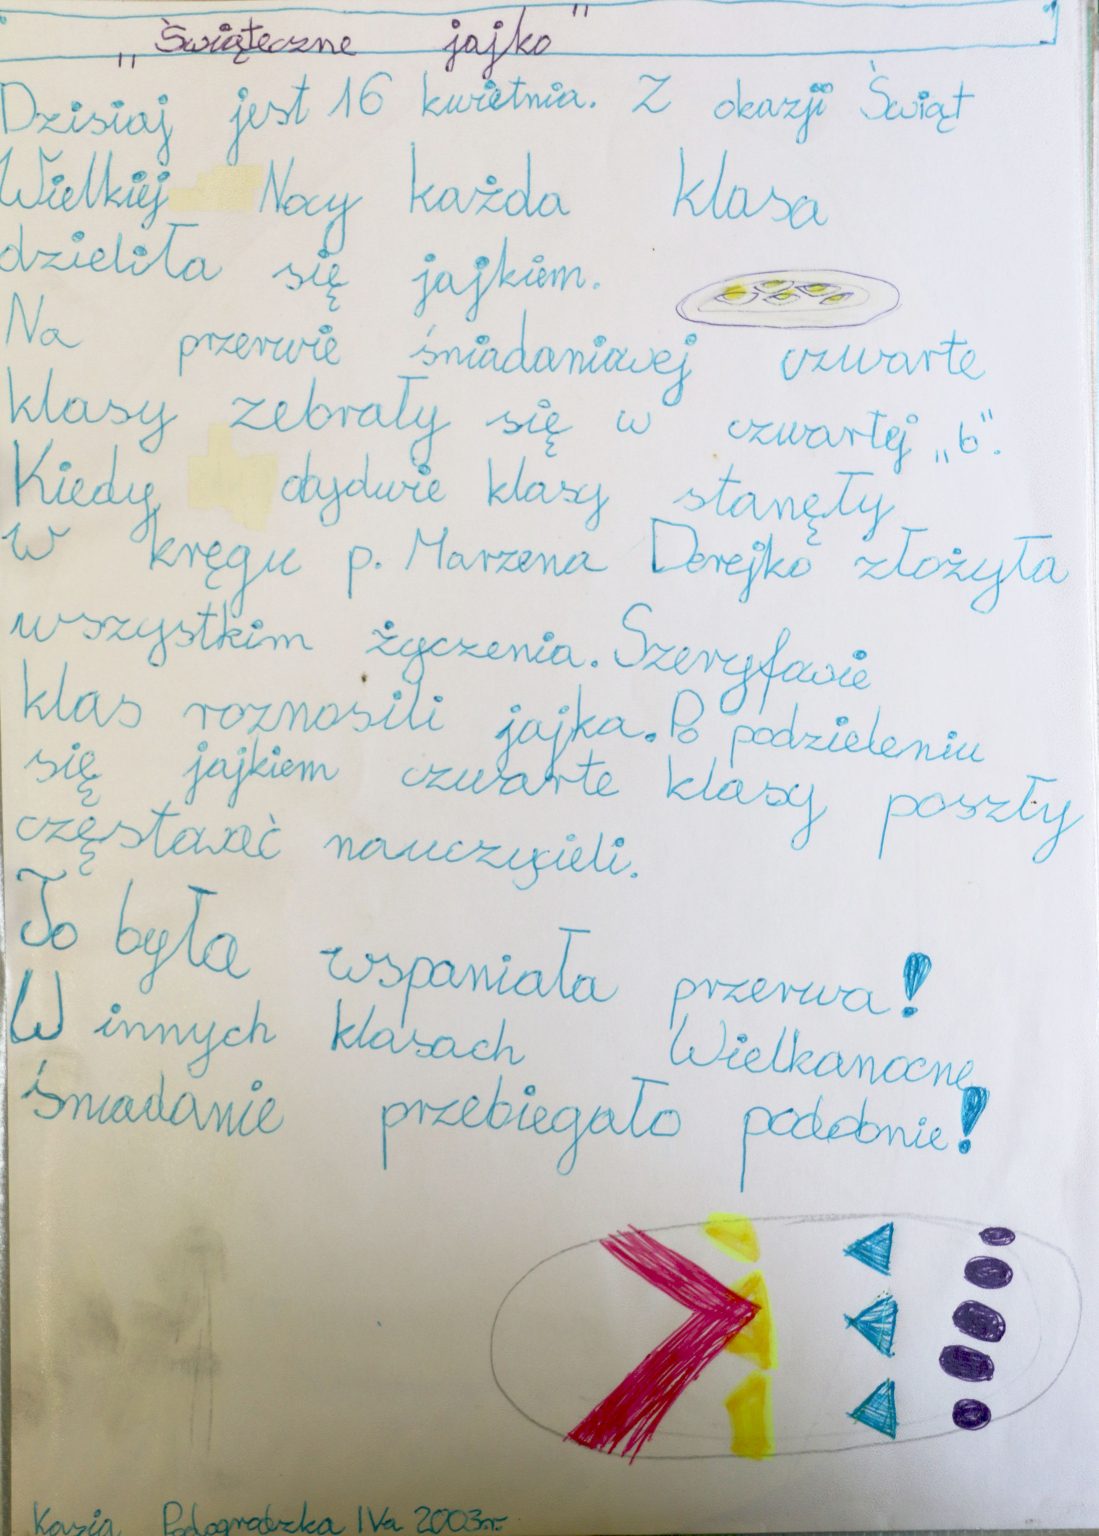 „Świąteczne jajko”
Dzisiaj jest 16 kwietnia. Z okazji Świąt
Wielkiej Nocy każda klasa
dzieliła się jajkiem.
Na przerwie śniadaniowej czwarte
klasy zebrały się w czwartej „b”.
Kiedy obydwie klasy stanęły
w kręgu p. Marzena Derejko złożyła
wszystkim życzenia. Szeryfowie
klas roznosili jajka. Po podzieleniu
się jajkiem czwarte klasy poszły
częstować nauczycieli.
To była wspaniała przerwa!
W innych klasach Wielkanocne
śniadanie przebiegało podobnie!
Kasia Podogrodzka IVa 2003r.